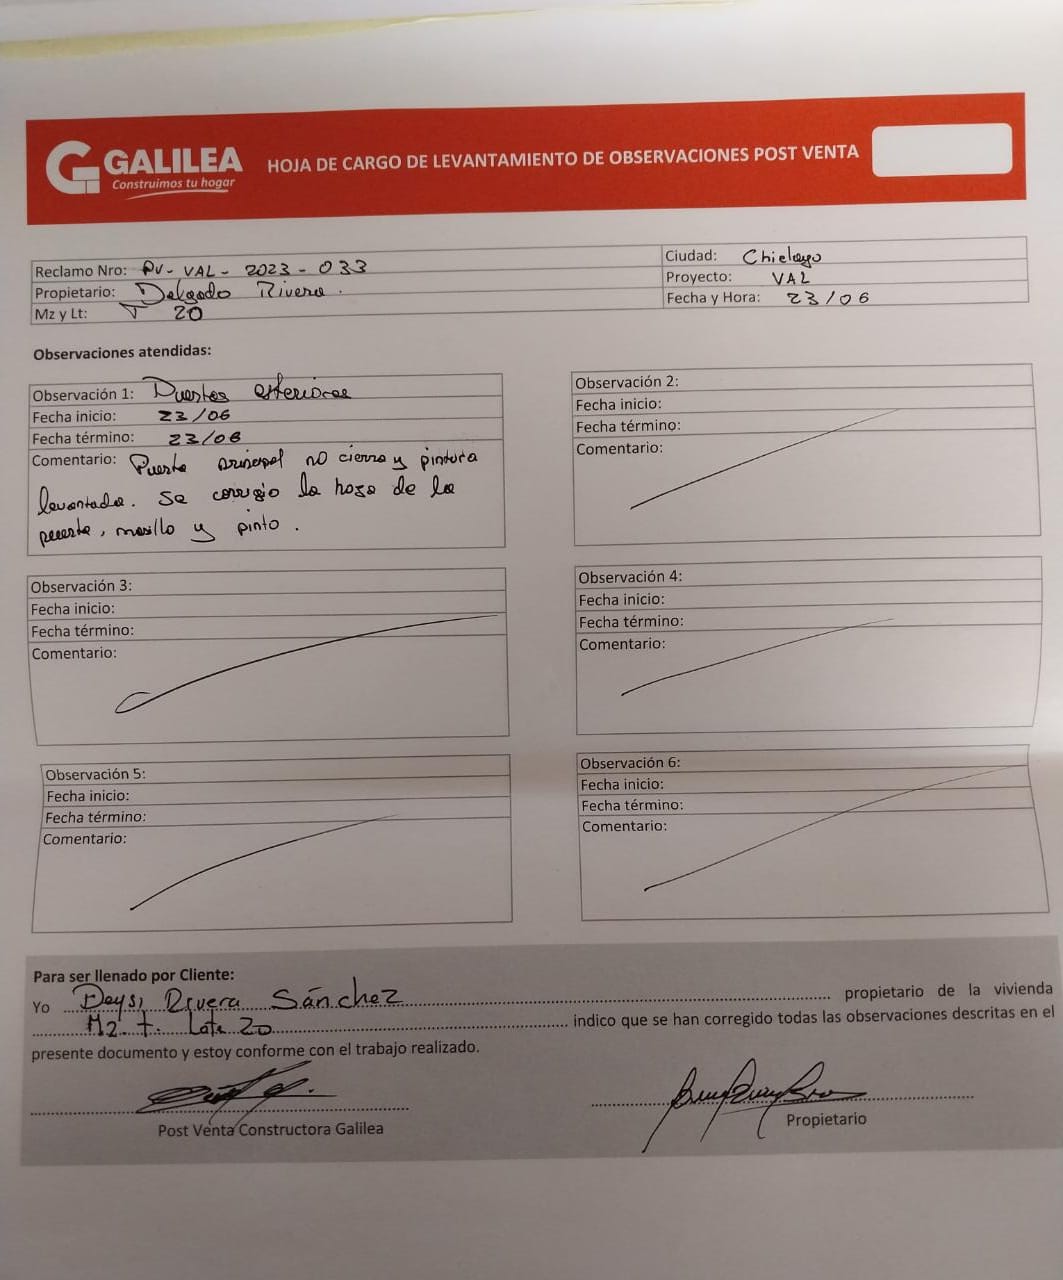 GALILEA
Construimos tu hogar
HOJA DE CARGO DE LEVANTAMIENTO DE OBSERVACIONES POST VENTA
Reclamo Nro: PV - VAL - 2023 - 033
Ciudad: Chiclayo
Propietario: Delgado Rivera.
Proyecto: VAL
Mz y Lt: T 20
Fecha y Hora: 23/06
Observaciones atendidas:
Observación 1: Puertas exteriores
Fecha inicio: 23/06
Fecha término: 23/06
Comentario: Puerta principal no cierra y pintura
levantada. Se corrigio la hoja de la
puerta, masillo y pinto.
Observación 2:
Fecha inicio:
Fecha término:
Comentario:
Observación 3:
Fecha inicio:
Fecha término:
Comentario:
Observación 4:
Fecha inicio:
Fecha término:
Comentario:
Observación 5:
Fecha inicio:
Fecha término:
Comentario:
Observación 6:
Fecha inicio:
Fecha término:
Comentario:
Para ser llenado por Cliente:
Yo Deysi Rivera Sánchez propietario de la vivienda
Mz. t. Lote 20 indico que se han corregido todas las observaciones descritas en el
presente documento y estoy conforme con el trabajo realizado.
Post Venta Constructora Galilea
Propietario